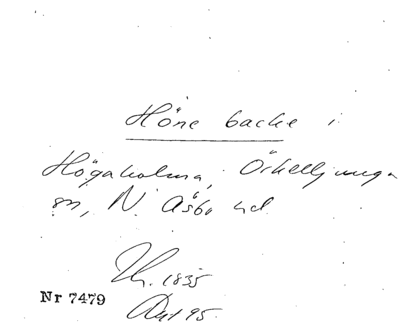 Höne backe i
Högaholma, Örkelljunga
sn, N. Åsbo hd
1835
Nr 7479